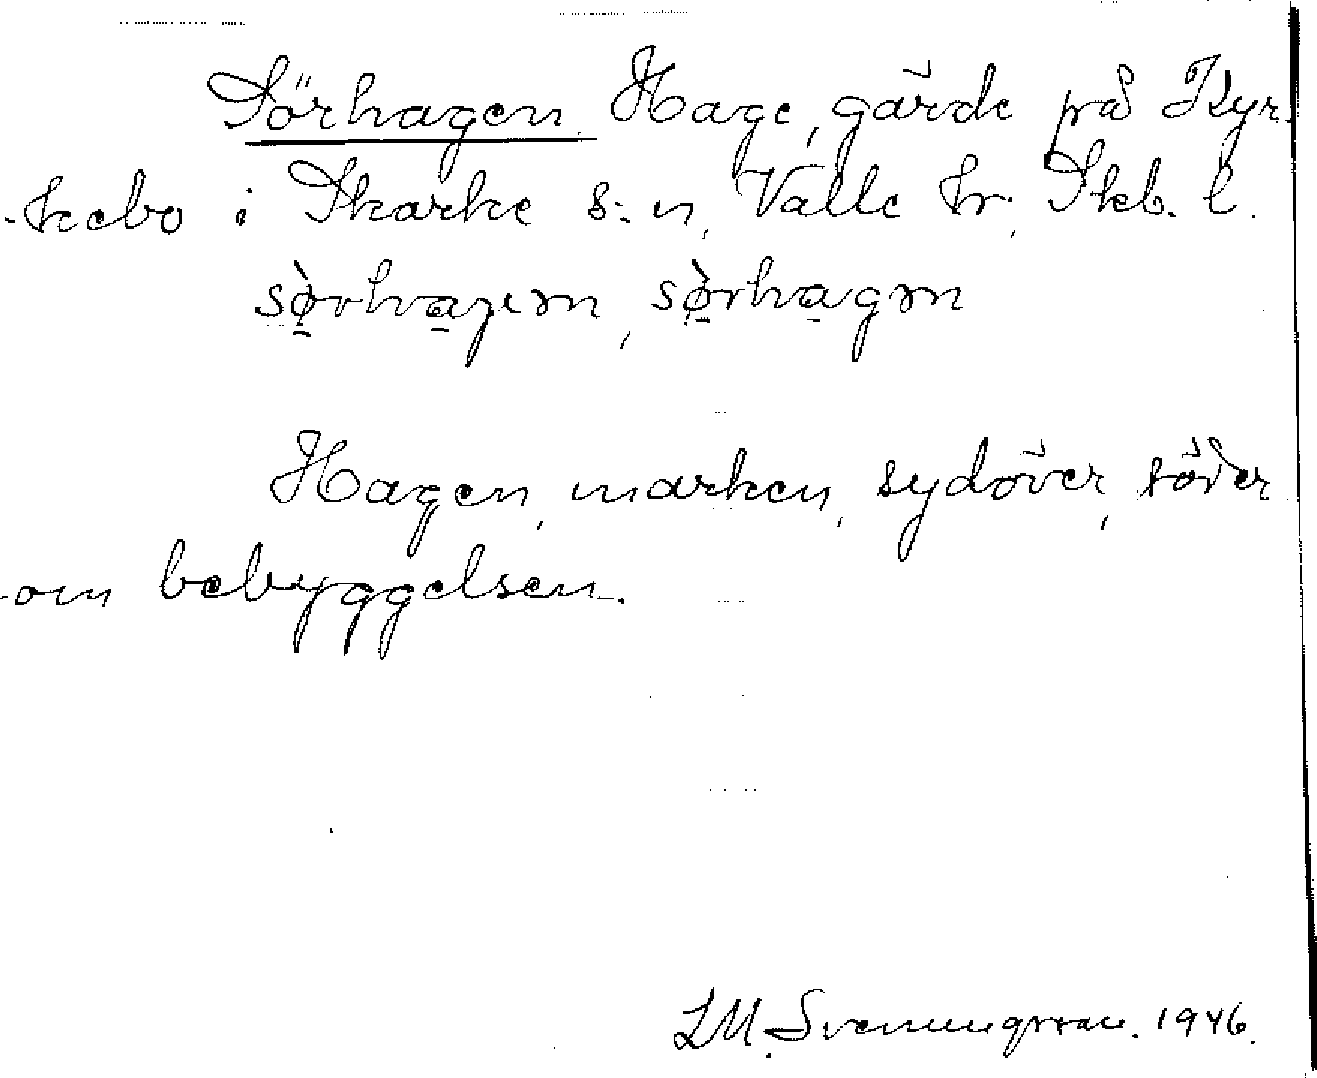 Sörhagen. Hage, gärde på Kyr-
kebo i Skarke s:n, Valle hr, Skb. l.
sø̀rhaɡen, sø̀rhagən
Hagen, marken, sydöver, söder
om bebyggelsen.
LM. Svenungsson. 1946.